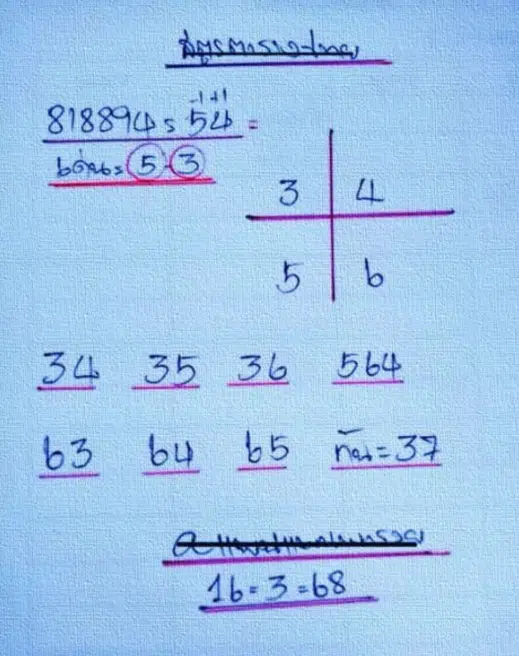 818894 = 54 =
-1+1
เด่น = 5-3
3 4
5 6
34 35 36 564
63 64 65 กัน = 37
16 = 3 = 68